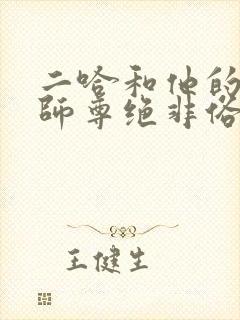 二哈和他的
師尊绝非俗
王健生